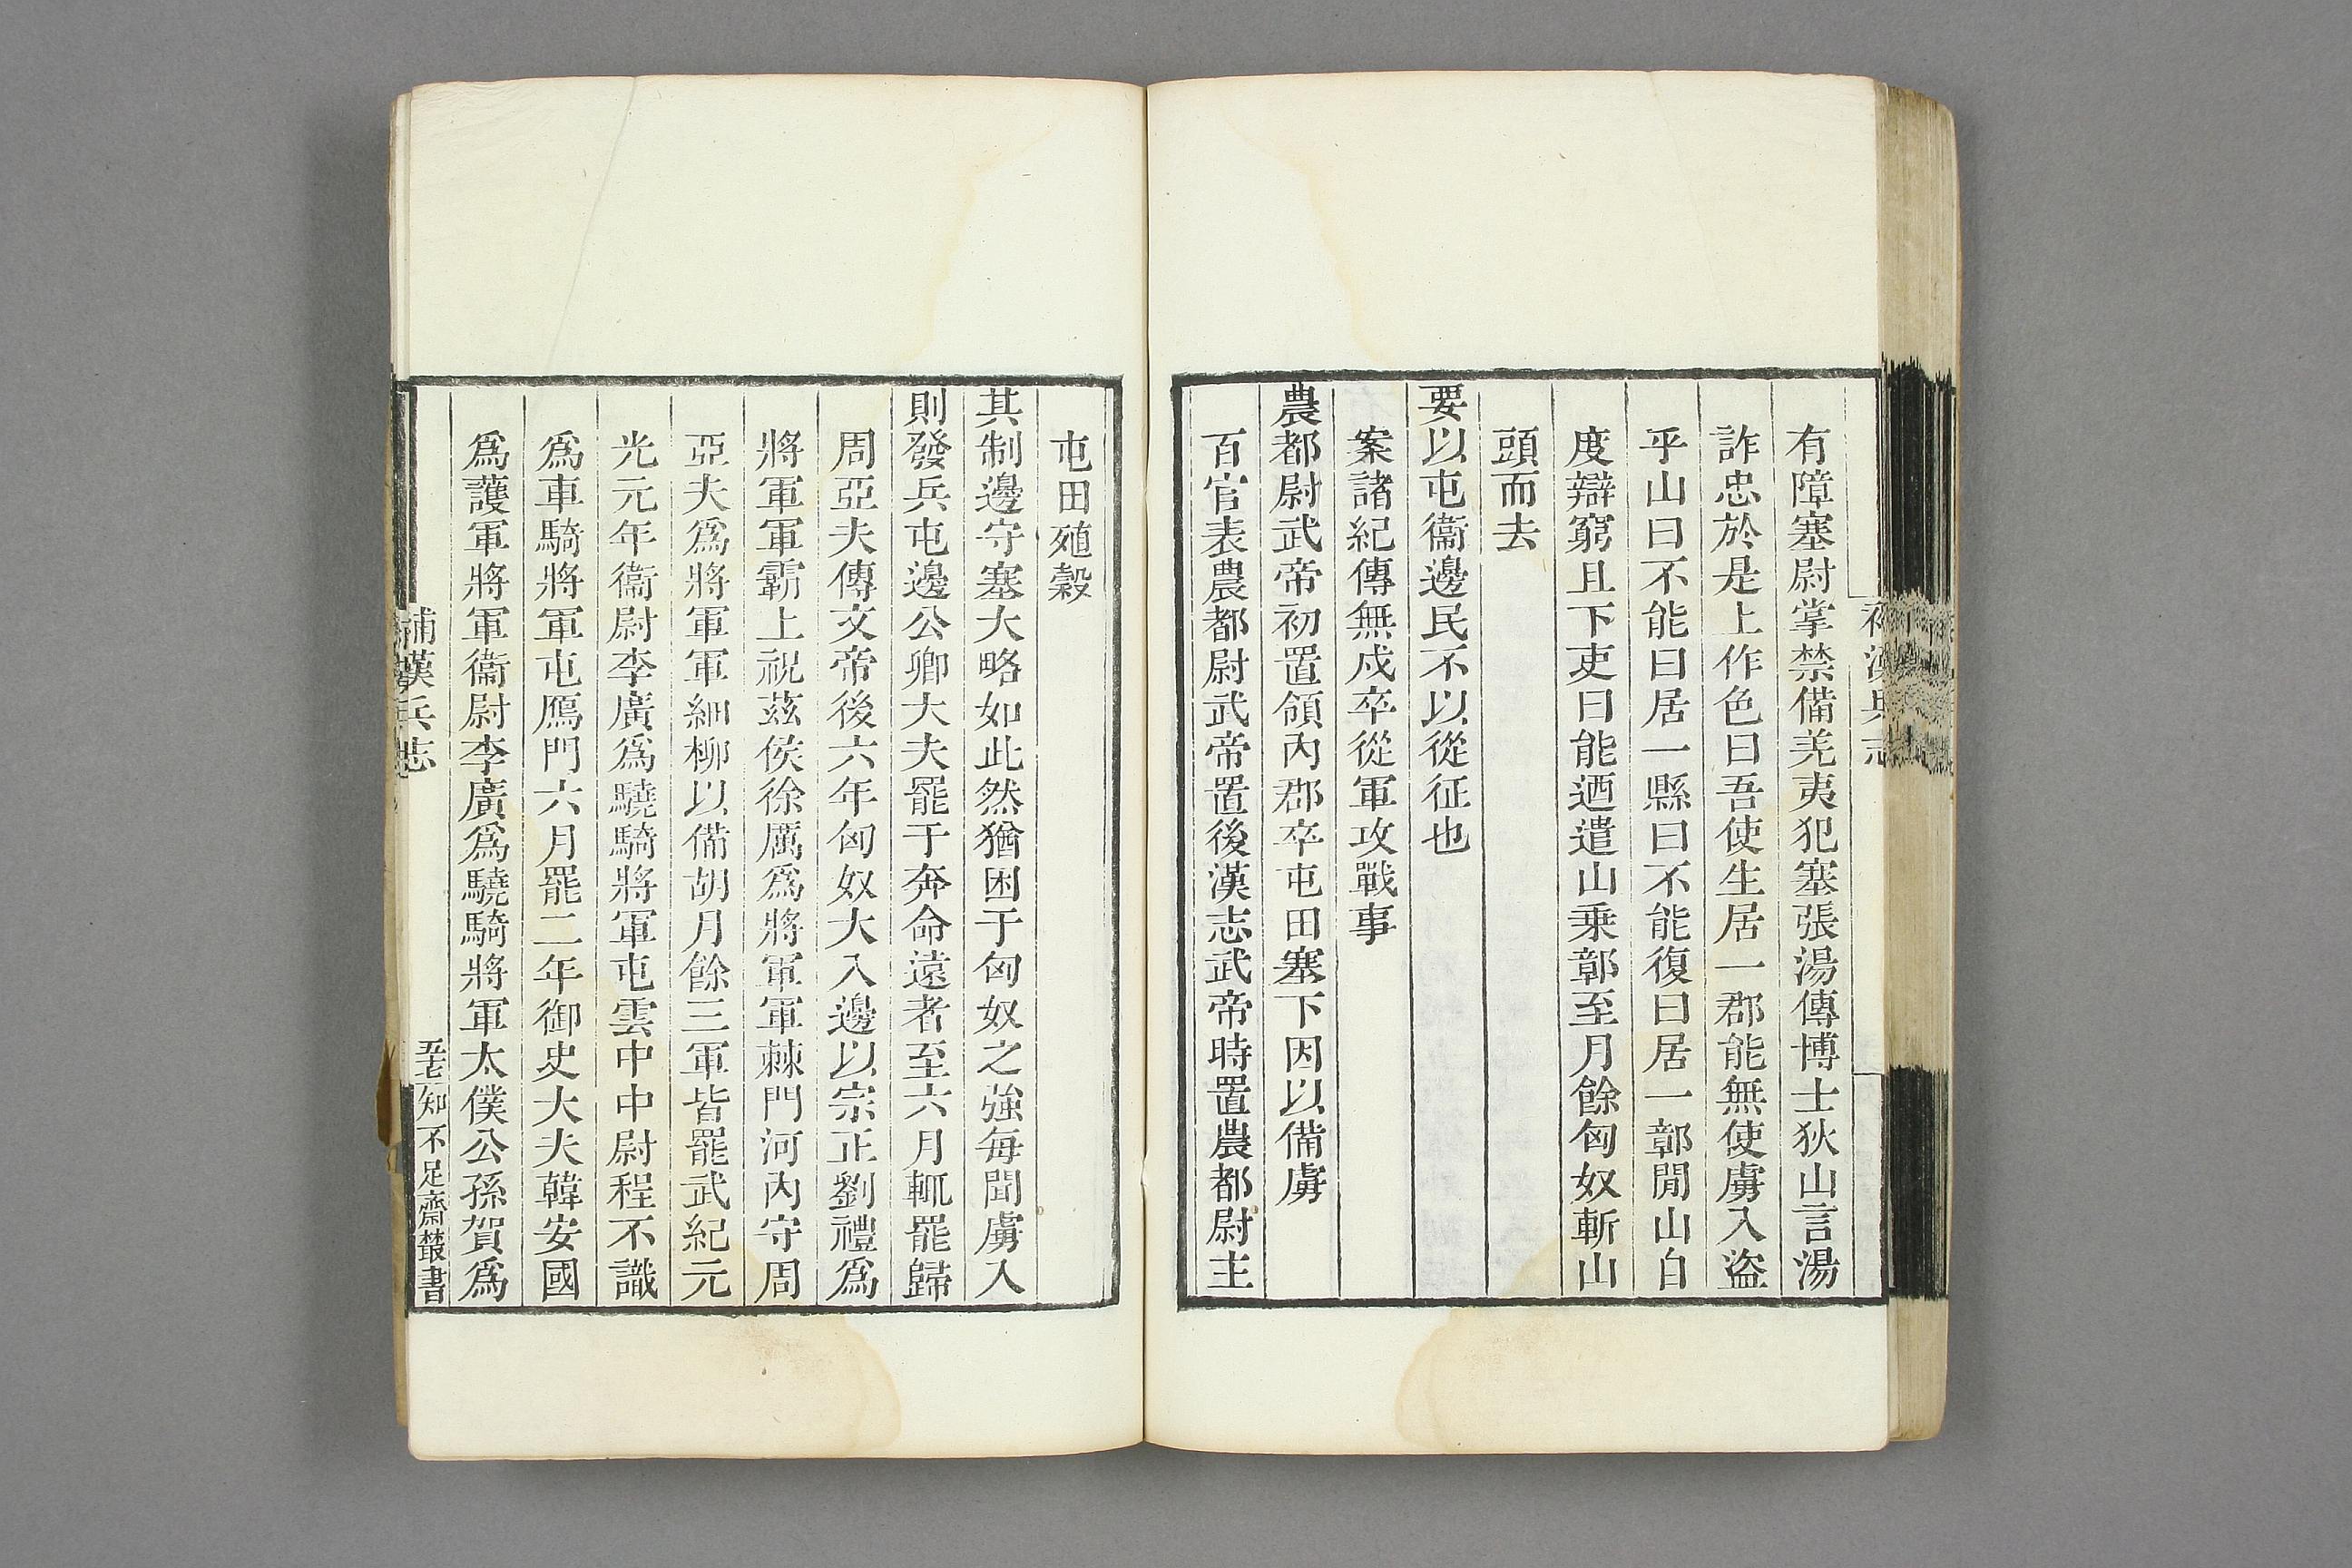 有障塞尉掌禁備羌夷犯塞張湯傳博士狄山言湯
詐忠於是上作色曰吾使生居一郡能無使虜入盜
乎山曰不能曰居一縣曰不能復曰居一鄣閒山自
度辯窮且下吏曰能迺遣山乗鄣至月餘匈奴斬山
頭而去
要以屯衞邊民不以從征也
案諸紀傳無戍卒從軍攻戰事
農都尉武帝初置領內郡卒屯田塞下因以備虜
百官表農都尉武帝置後漢志武帝時置農都尉主
屯田殖穀
其制邊守塞大略如此然猶困于匈奴之強每聞虜入
則發兵屯邊公卿大夫罷于奔命遠者至六月輒罷歸
周亞夫傳文帝後六年匈奴大入邊以宗正劉禮爲
將軍軍霸上祝茲侯徐厲爲將軍軍棘門河內守周
亞夫爲將軍軍細柳以備胡月餘三軍皆罷武紀元
光元年衞尉李廣爲驍騎將軍屯雲中中尉程不識
爲車騎將軍屯鴈門六月罷二年御史大夫韓安國
爲護軍將軍衞尉李廣爲驍騎將軍太僕公孫賀爲
補漢兵志
知不足齋叢書